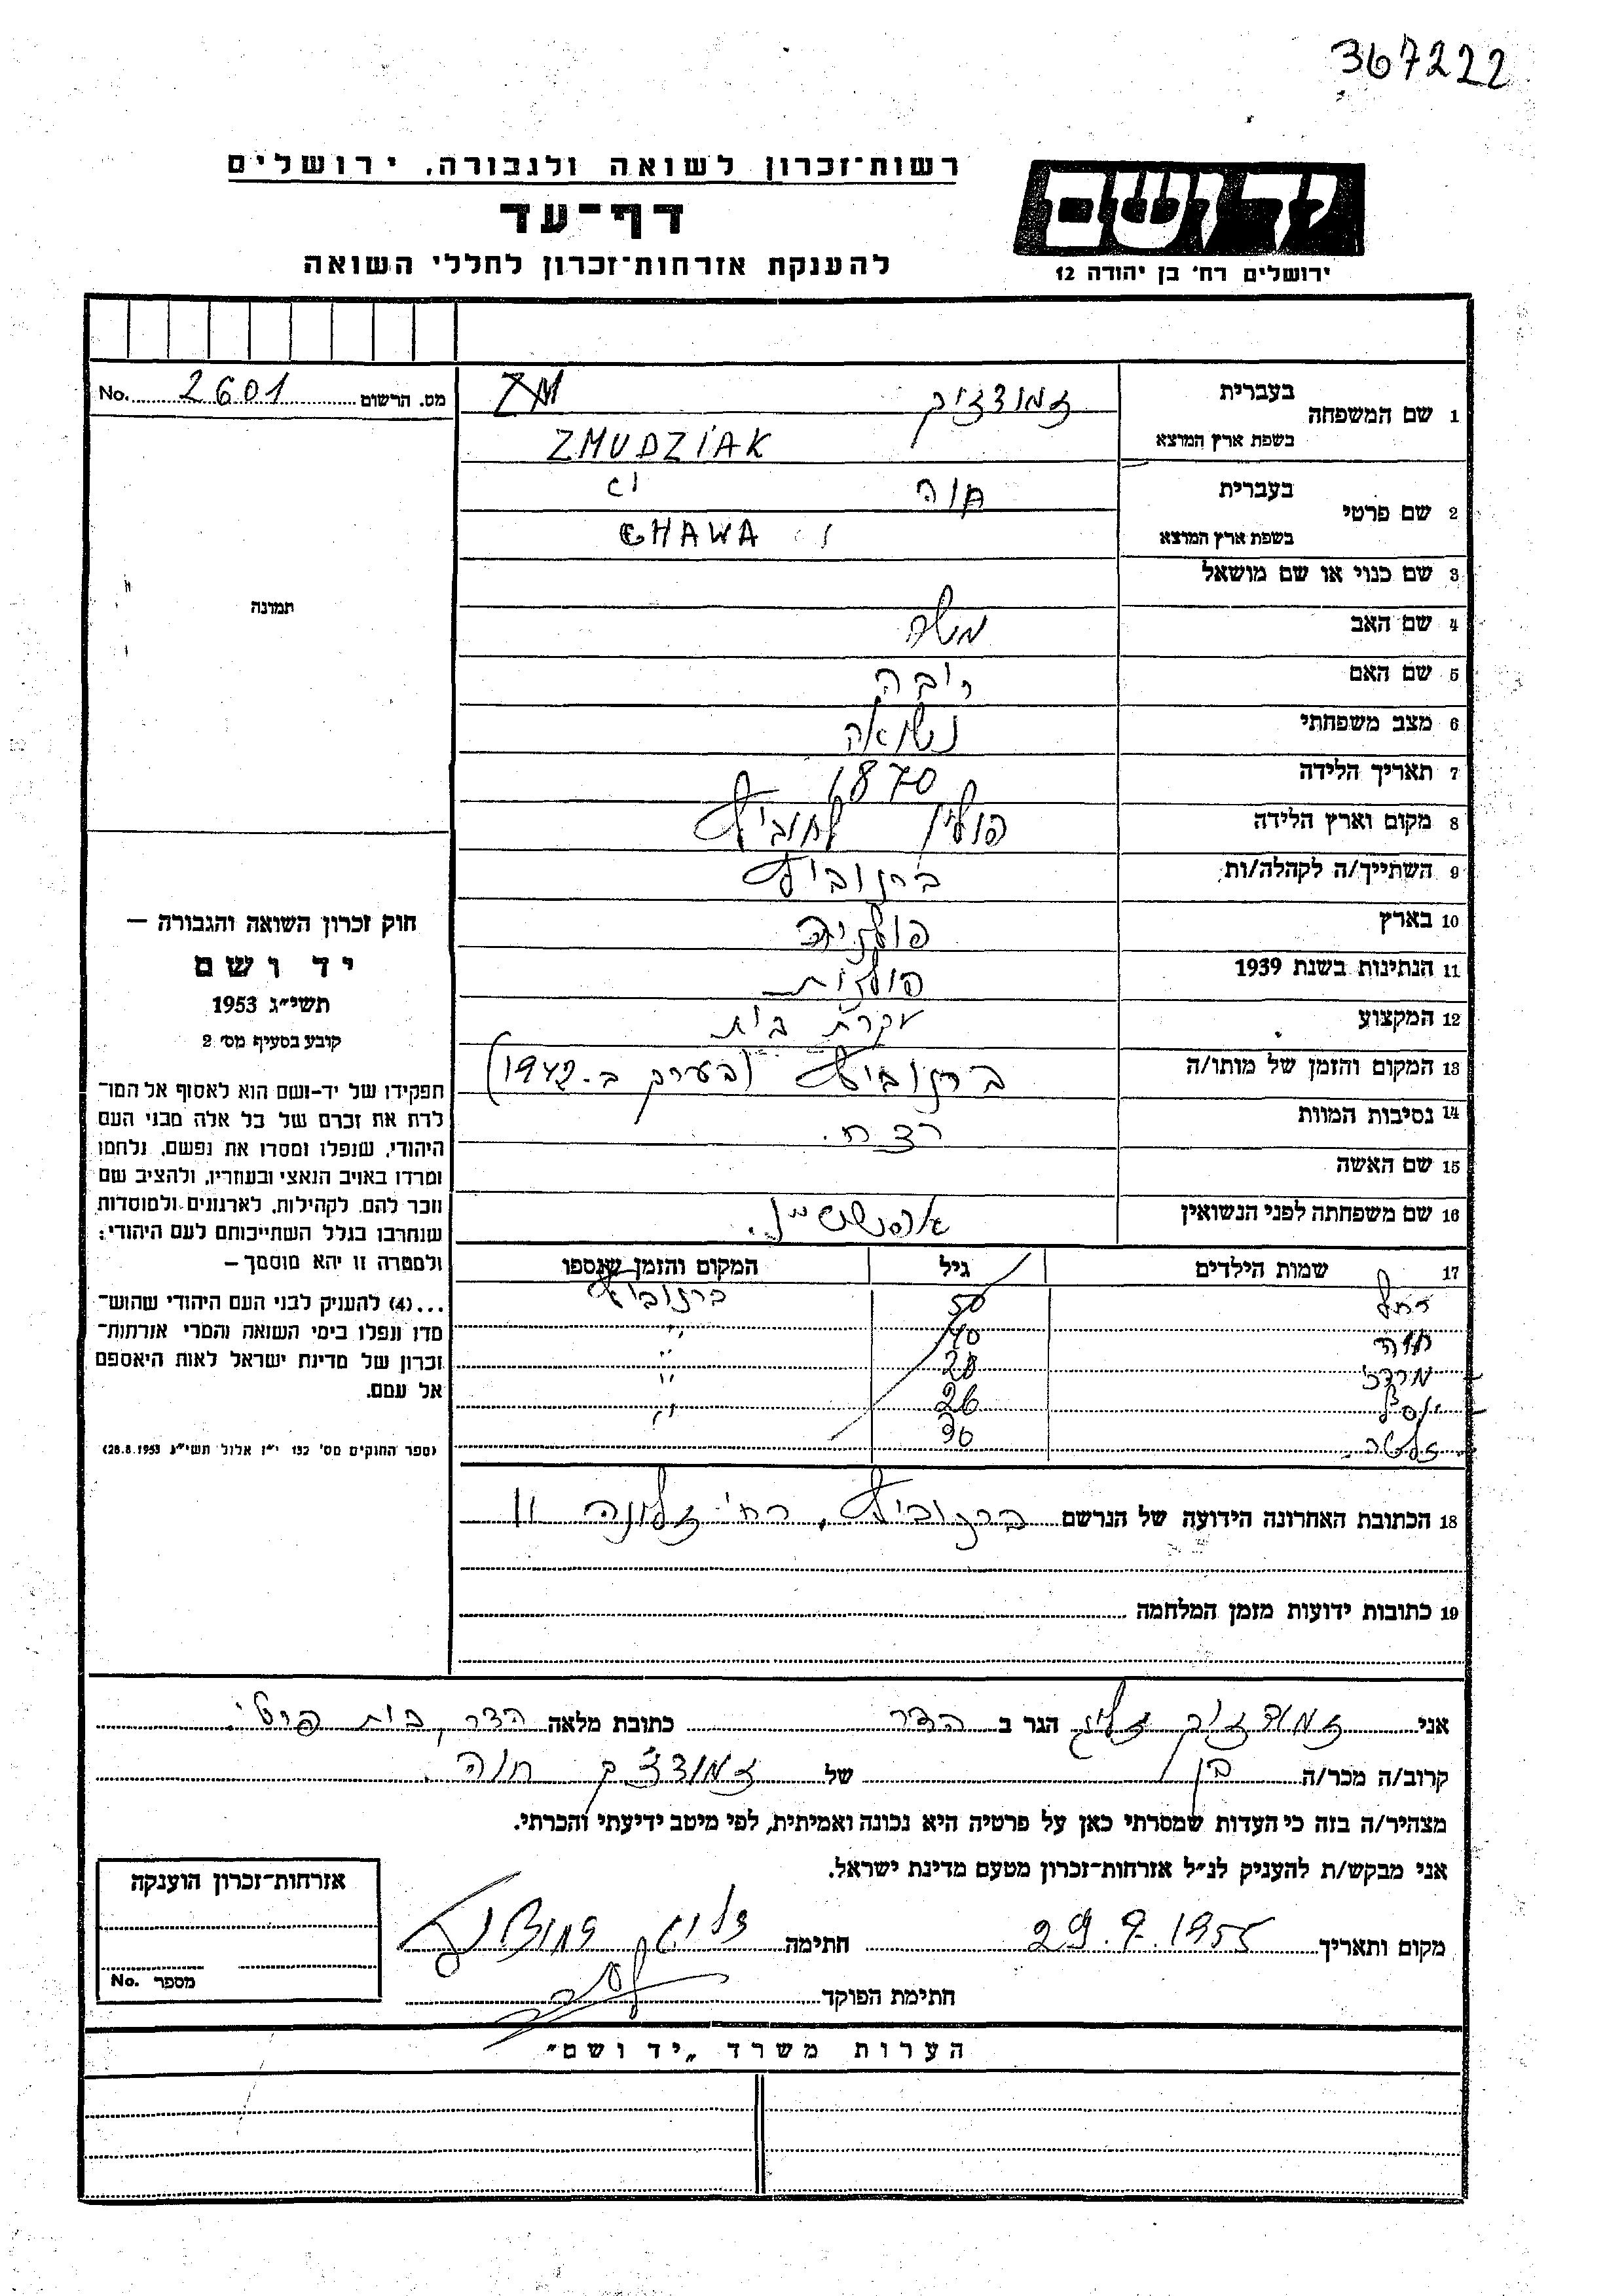 367222
רשות־זכרון לשואה ולגבורה, ירושלים
דף־עד
להענקת אזרחות־זכרון לחללי השואה
יד ושם
ירושלים רח' בן יהודה 12
מס. הרשום 2601 No.
1 שם המשפחה
בעברית זמודזיק ZM
בשפת ארץ המוצא ZMUDZIAK
2 שם פרטי
בעברית חוה
בשפת ארץ המוצא CHAWA
3 שם כנוי או שם מושאל
4 שם האב משה
5 שם האם ריבה
6 מצב משפחתי נשואה
7 תאריך הלידה 1870
8 מקום וארץ הלידה פולין
9 השתייך/ה לקהלה/ות ברנוביץ
10 בארץ פולניה
11 הנתינות בשנת 1939 פולנית
12 המקצוע עקרת בית
13 המקום והזמן של מותו/ה ברנוביץ (בערך ב-1942)
14 נסיבות המוות רצח.
15 שם האשה
16 שם משפחתה לפני הנשואין
17 שמות הילדים גיל המקום והזמן שנספו
רחל 50 ברנוביץ
חוה 40 "
מרדכי 28 "
יוסף 26 "
זלטה
18 הכתובת האחרונה הידועה של הנרשם ברנוביץ, רח' זלונה 11
19 כתובות ידועות מזמן המלחמה
תמונה
חוק זכרון השואה והגבורה —
יד ושם
תשי"ג 1953
קובע בסעיף מס' 2
תפקידו של יד-ושם הוא לאסוף אל המו־
לדת את זכרם של כל אלה מבני העם
היהודי, שנפלו ומסרו את נפשם, נלחמו
ומרדו באויב הנאצי ובעוזריו, ולהציב שם
וזכר להם, לקהילות, לארגונים ולמוסדות
שנחרבו בגלל השתייכותם לעם היהודי;
ולמטרה זו יהא מוסמך —
...(4) להעניק לבני העם היהודי שהוש־
מדו ונפלו בימי השואה והמרי אזרחות־
זכרון של מדינת ישראל לאות היאספם
אל עמם.
(ספר החוקים מס' 132 י"ז אלול תשי"ג 28.8.1953)
אני זמודזיק זליג הגר ב הדר כתובת מלאה הדר, בית פרטי.
קרוב/ה מכר/ה בן של זמודזיק חוה
מצהיר/ה בזה כי העדות שמסרתי כאן על פרטיה היא נכונה ואמיתית, לפי מיטב ידיעתי והכרתי.
אני מבקש/ת להעניק לנ"ל אזרחות־זכרון מטעם מדינת ישראל.
מקום ותאריך 29.9.1955 חתימה זליג
חתימת הפוקד
אזרחות־זכרון הוענקה
מספר No.
הערות משרד „יד ושם"